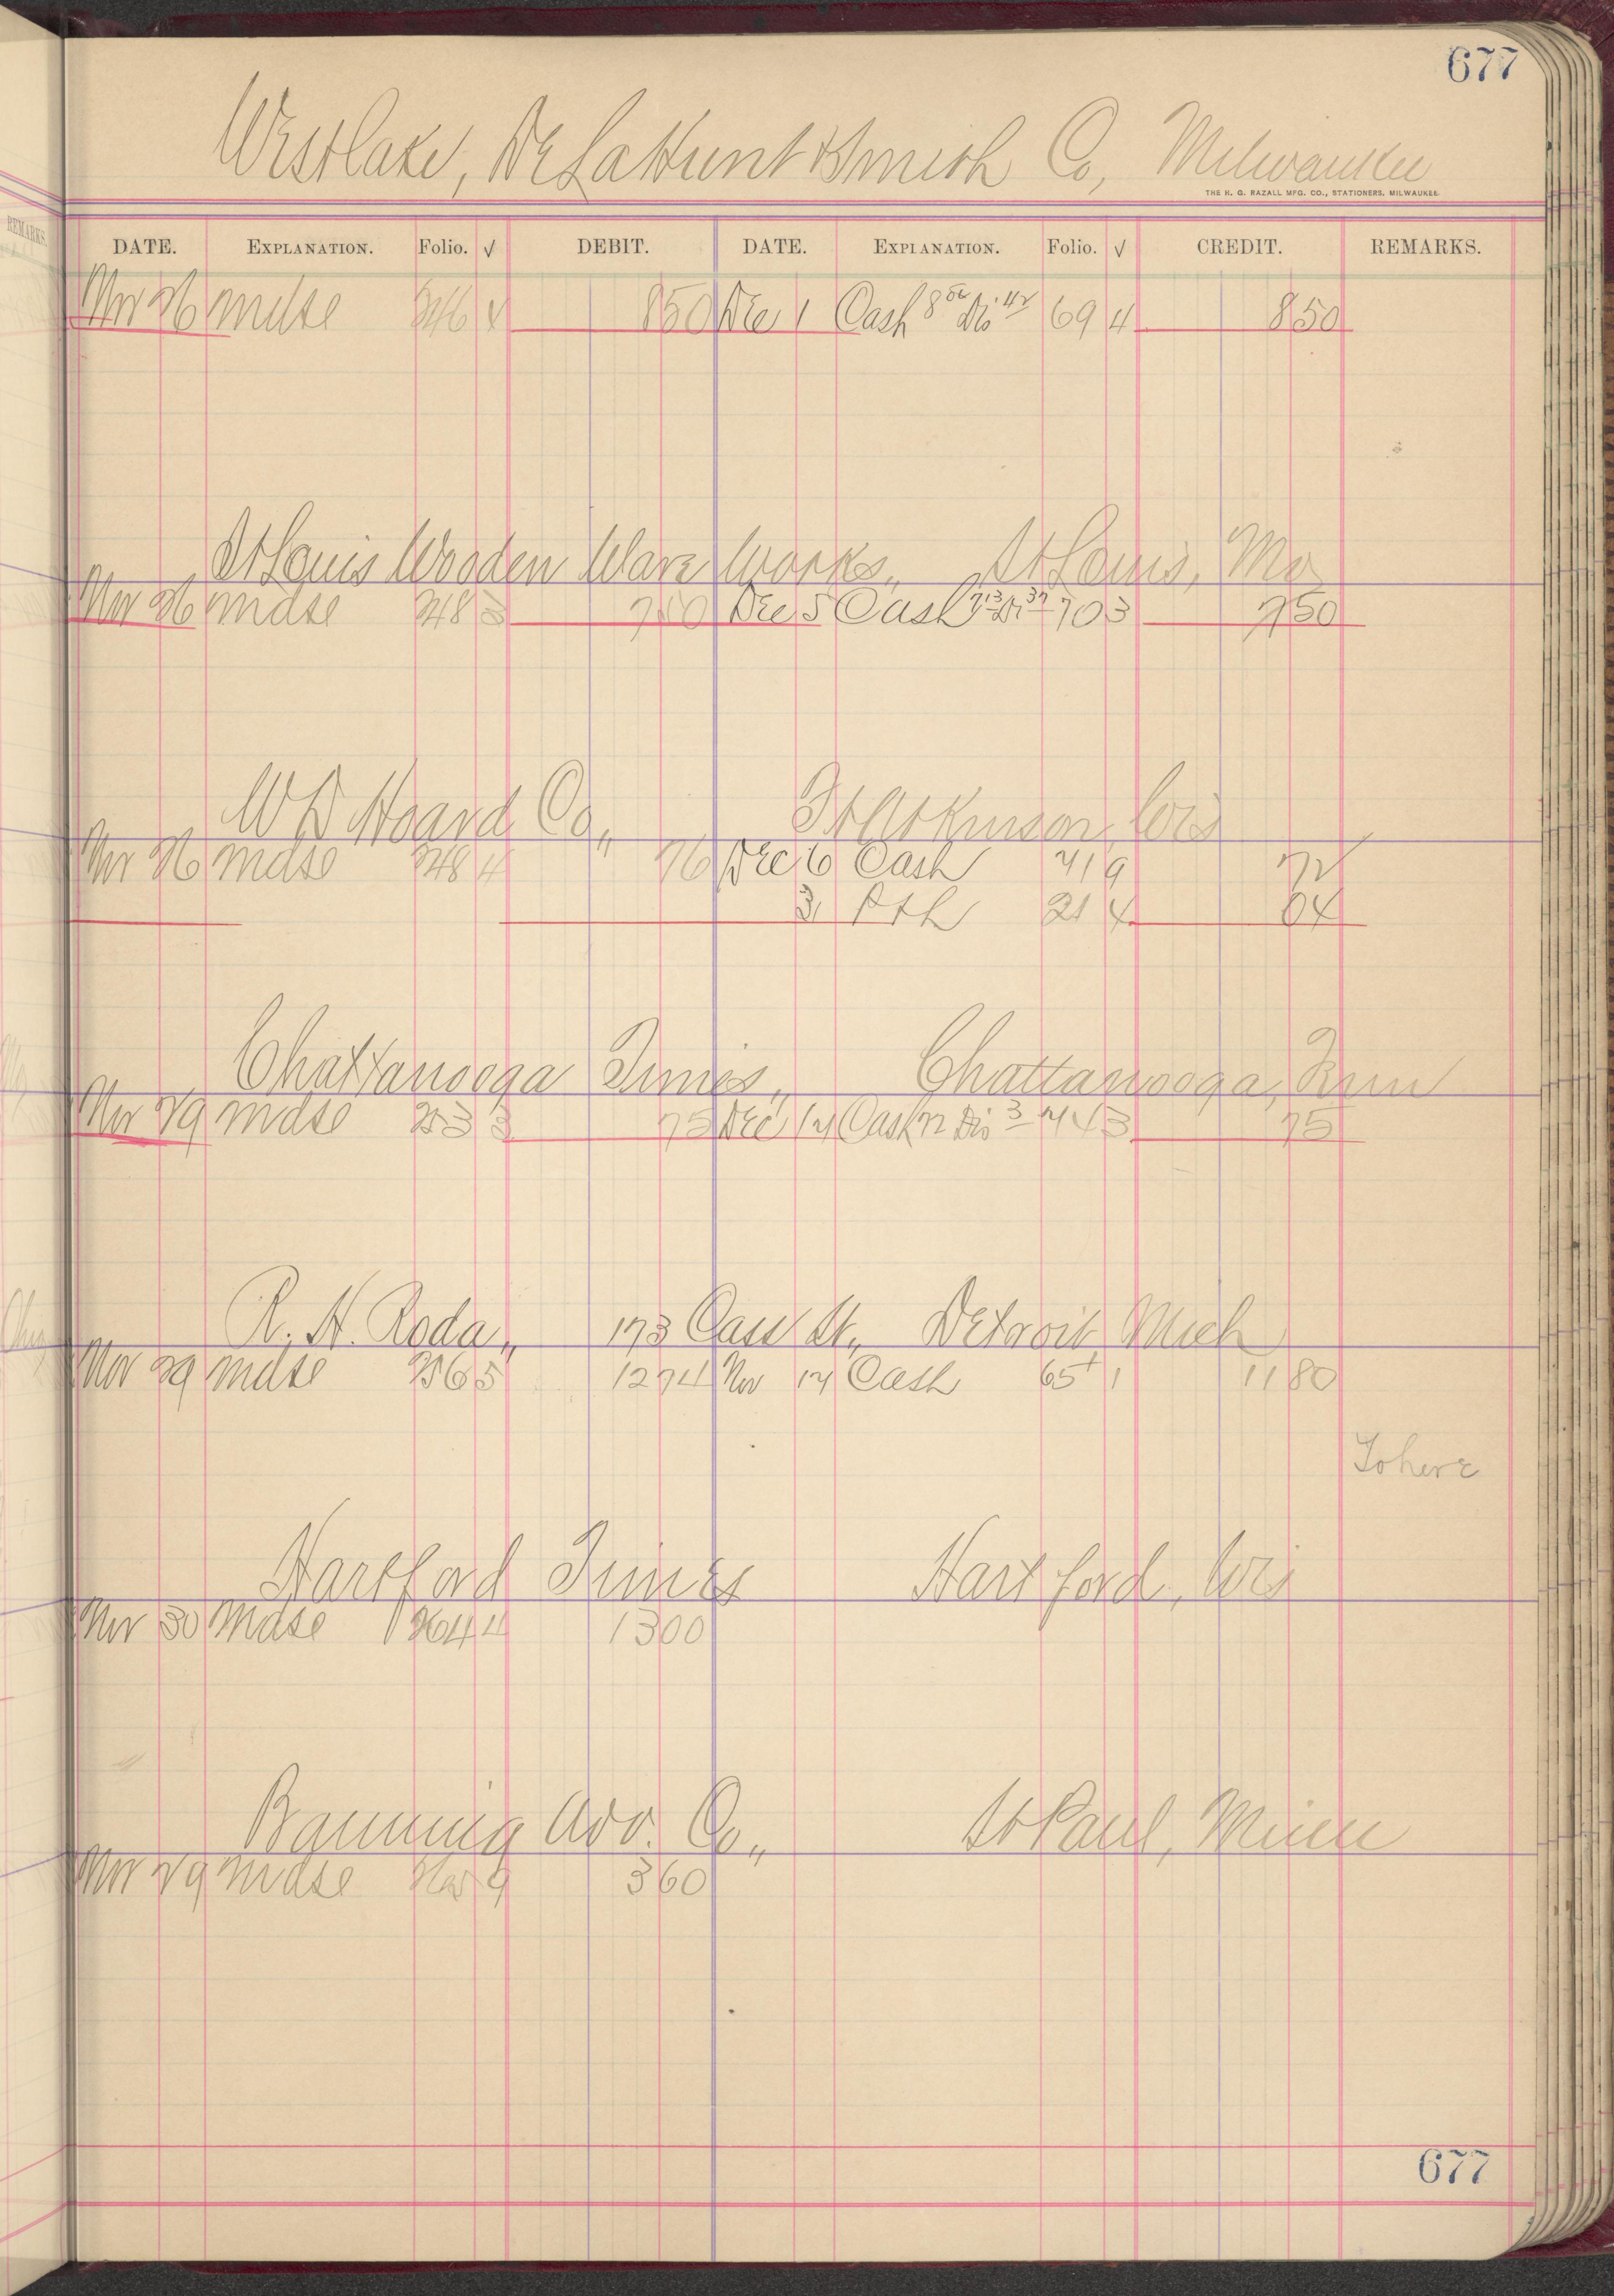 677
Westlake, DeLaHunt & Smith Co, Milwaukee
THE H. G. RAZALL MFG. CO., STATIONERS, MILWAUKEE.
DATE. EXPLANATION. Folio. √ DEBIT. DATE. EXPLANATION. Folio. √ CREDIT. REMARKS.
Nov 26 mdse 246 4 850 Dec 1 Cash 8 08 Dis 42 69 4 850
St Louis Wooden Ware Works, St Louis, Mo
Nov 26 mdse 248 3 750 Dec 5 Cash 713 Dis 37 703 750
W D Hoard Co, Ft Atkinson, Wis
Nov 26 mdse 248 4 76 Dec 6 Cash 719 72
31 P & L 214 04
Chattanooga Times, Chattanooga, Tenn
Nov 29 mdse 253 3 75 Dec 14 Cash 72 Dis 3 743 75
R. H. Roda, 173 Cass St., Detroit, Mich
Nov 29 mdse 256 5 1274 Nov 14 Cash 651 1180
To here
Hartford Times Hartford, Wis
Nov 30 mdse 264 4 1300
Banning Adv. Co, St Paul, Minn
Nov 29 mdse 9 360
677